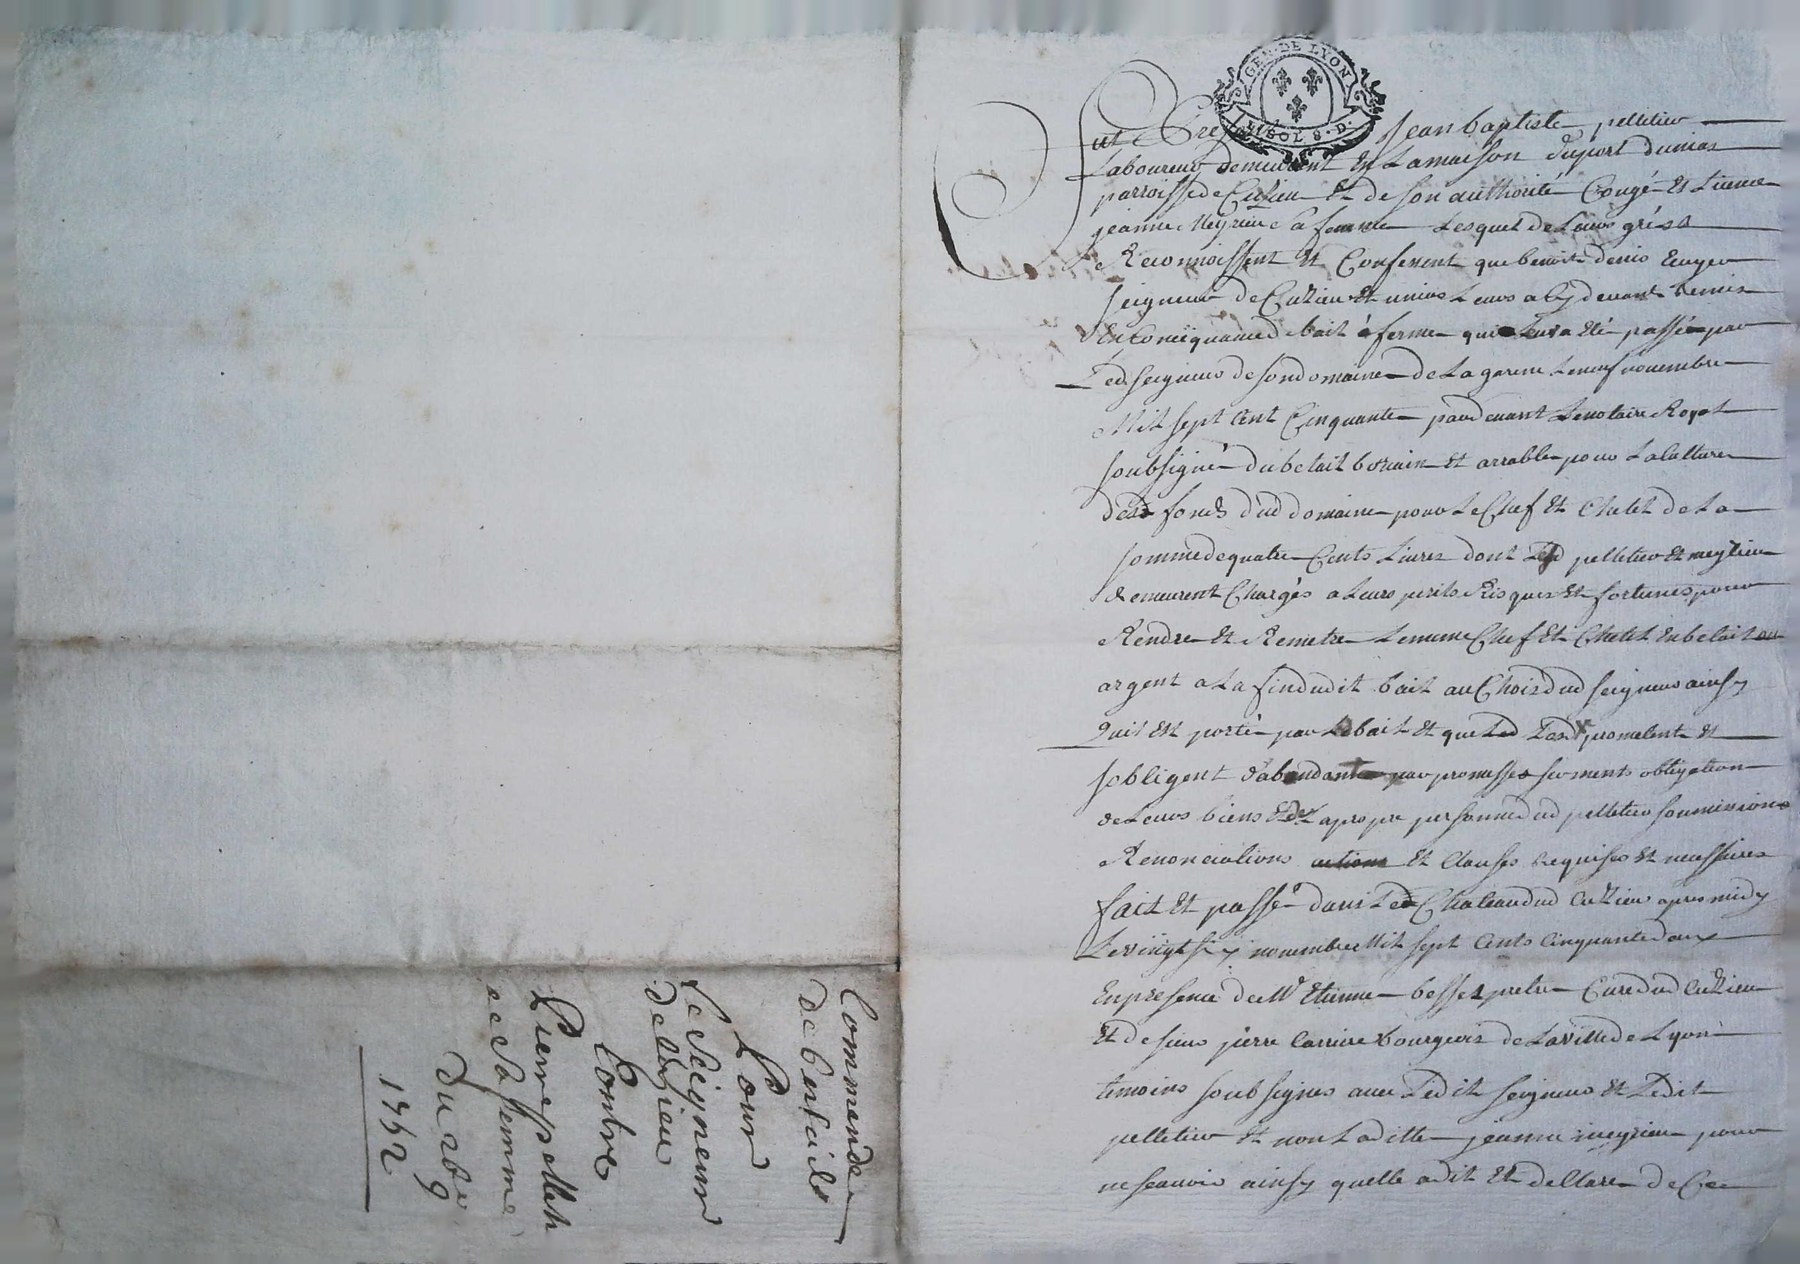 GEN. DE LYON
UN SOL 8. D.
fut présent Jean baptiste pelletier
Laboureur demeurant en La maison duport dunias
parroisse de Cuzieu Et de son authorité Congé Et Licence
jeanne Meyrieu sa femme Lesquel de Leurs grés
Reconnoissent Et Confessent que benoit denis Ecuyer
seigneur de Cuzieu Et unias Leurs a Cy devant Remis
En Conséquance de bail à ferme qui Leur a été passé par
Led seigneur de son domaine de La garene Le neuf novembre
Mil sept Cent Cinquante pardevant Le notaire Royal
soubsigné du betail et arrable pour La Culture
des fonds dud domaine pour Le Chef Et Chetel de La
somme de quatre Cents Livres dont Lesd pelletier Et meyrieu
demeurent Chargés a Leurs perils Risques Et fortunes pour
Rendre Et Remetre Le meme Chef Et Chetel En betail ou
argent a La fin dudit bail au Choix dud seigneur ainsy
quil Est porté par Le bail Et que Lesd promettent Et
sobligent d'abondant par promesses serments obligation
de Leurs biens Et de La propre personne dud pelletier soumissions
Renonciations Et Clauses Requises Et necessaires
fait Et passé dans Led Chateau dud Cuzieu apres midy
Le vingt six novembre Mil sept Cents Cinquante deux
En presence de Mr Etienne besses pretre Curé dud Cuzieu
Et de sieur pierre Carriere bourgeois de La Ville de Lyon
temoins soubsignes avec Ledit seigneur Et Ledit
pelletier Et non Laditte jeanne meyrieu pour
ne scavoir ainsy quelle a dit Et declare de Ce
Commande
de bestails
Pour
Le Seigneur
de Cuzieu
Contre
Pierre pelletier
et Sa femme
Du 26 9bre
1752